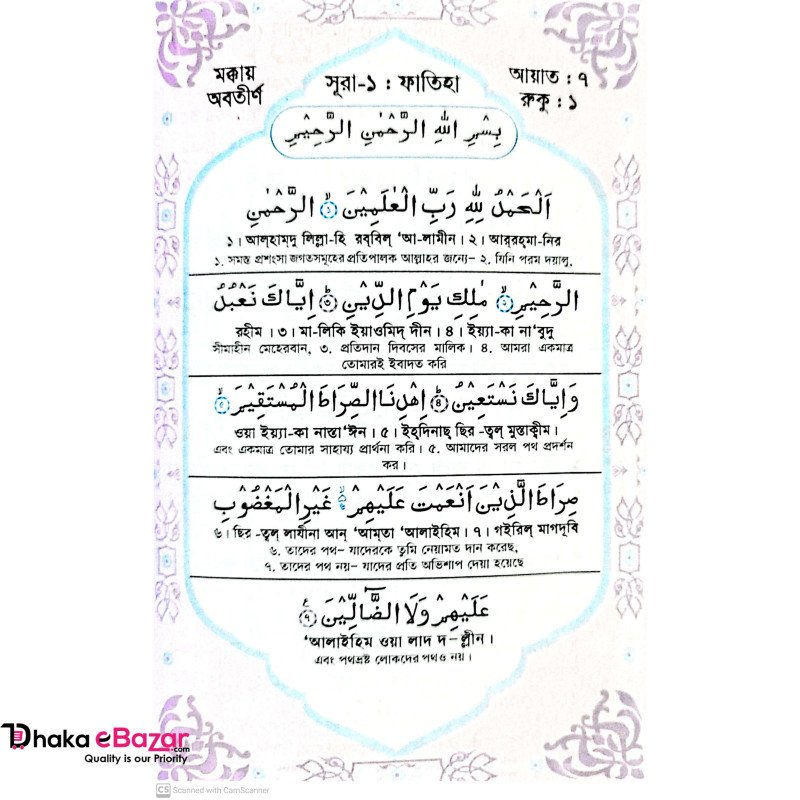 মক্কায়
অবতীর্ণ
সূরা-১ : ফাতিহা
আয়াত : ৭
রুকু : ১
بِسْمِ اللهِ الرَّحْمٰنِ الرَّحِيْمِ
اَلْحَمْدُ لِلّٰهِ رَبِّ الْعٰلَمِيْنَ ۙ﴿۱﴾ الرَّحْمٰنِ
১। আল্‌হাম্‌দু লিল্লা-হি রব্‌বিল্‌ ‘আ-লামীন। ২। আর্‌রহ্‌মা-নির
১. সমস্ত প্রশংসা জগতসমূহের প্রতিপালক আল্লাহর জন্যে– ২. যিনি পরম দয়ালু,
الرَّحِيْمِ ۙ﴿۲﴾ مٰلِكِ يَوْمِ الدِّيْنِ ؕ﴿۳﴾ اِيَّاكَ نَعْبُدُ
রহীম। ৩। মা-লিকি ইয়াওমিদ্‌ দীন। ৪। ইয়্যা-কা না‘বুদু
সীমাহীন মেহেরবান, ৩. প্রতিদান দিবসের মালিক। ৪. আমরা একমাত্র
তোমারই ইবাদত করি
وَاِيَّاكَ نَسْتَعِيْنُ ؕ﴿۴﴾ اِهْدِنَا الصِّرَاطَ الْمُسْتَقِيْمَ ۙ﴿۵﴾
ওয়া ইয়্যা-কা নাস্তা‘ঈন। ৫। ইহ্‌দিনাছ্‌ ছির-ত্বল্‌ মুস্তাক্বীম।
এবং একমাত্র তোমার সাহায্য প্রার্থনা করি। ৫. আমাদের সরল পথ প্রদর্শন
কর।
صِرَاطَ الَّذِيْنَ اَنْعَمْتَ عَلَيْهِمْ ۙ غَيْرِ الْمَغْضُوْبِ
৬। ছির-ত্বল্‌ লাযীনা আন্‌ ‘আম্‌তা ‘আলাইহিম। ৭। গইরিল্‌ মাগদ্বূবি
৬. তাদের পথ– যাদেরকে তুমি নেয়ামত দান করেছ,
৭. তাদের পথ নয়– যাদের প্রতি অভিশাপ দেয়া হয়েছে
عَلَيْهِمْ وَلَا الضَّآلِّيْنَ ﴿۷﴾
‘আলাইহিম ওয়া লাদ দ–ল্লীন।
এবং পথভ্রষ্ট লোকদের পথও নয়।
Dhaka eBazar.com
Quality is our Priority
CS Scanned with CamScanner